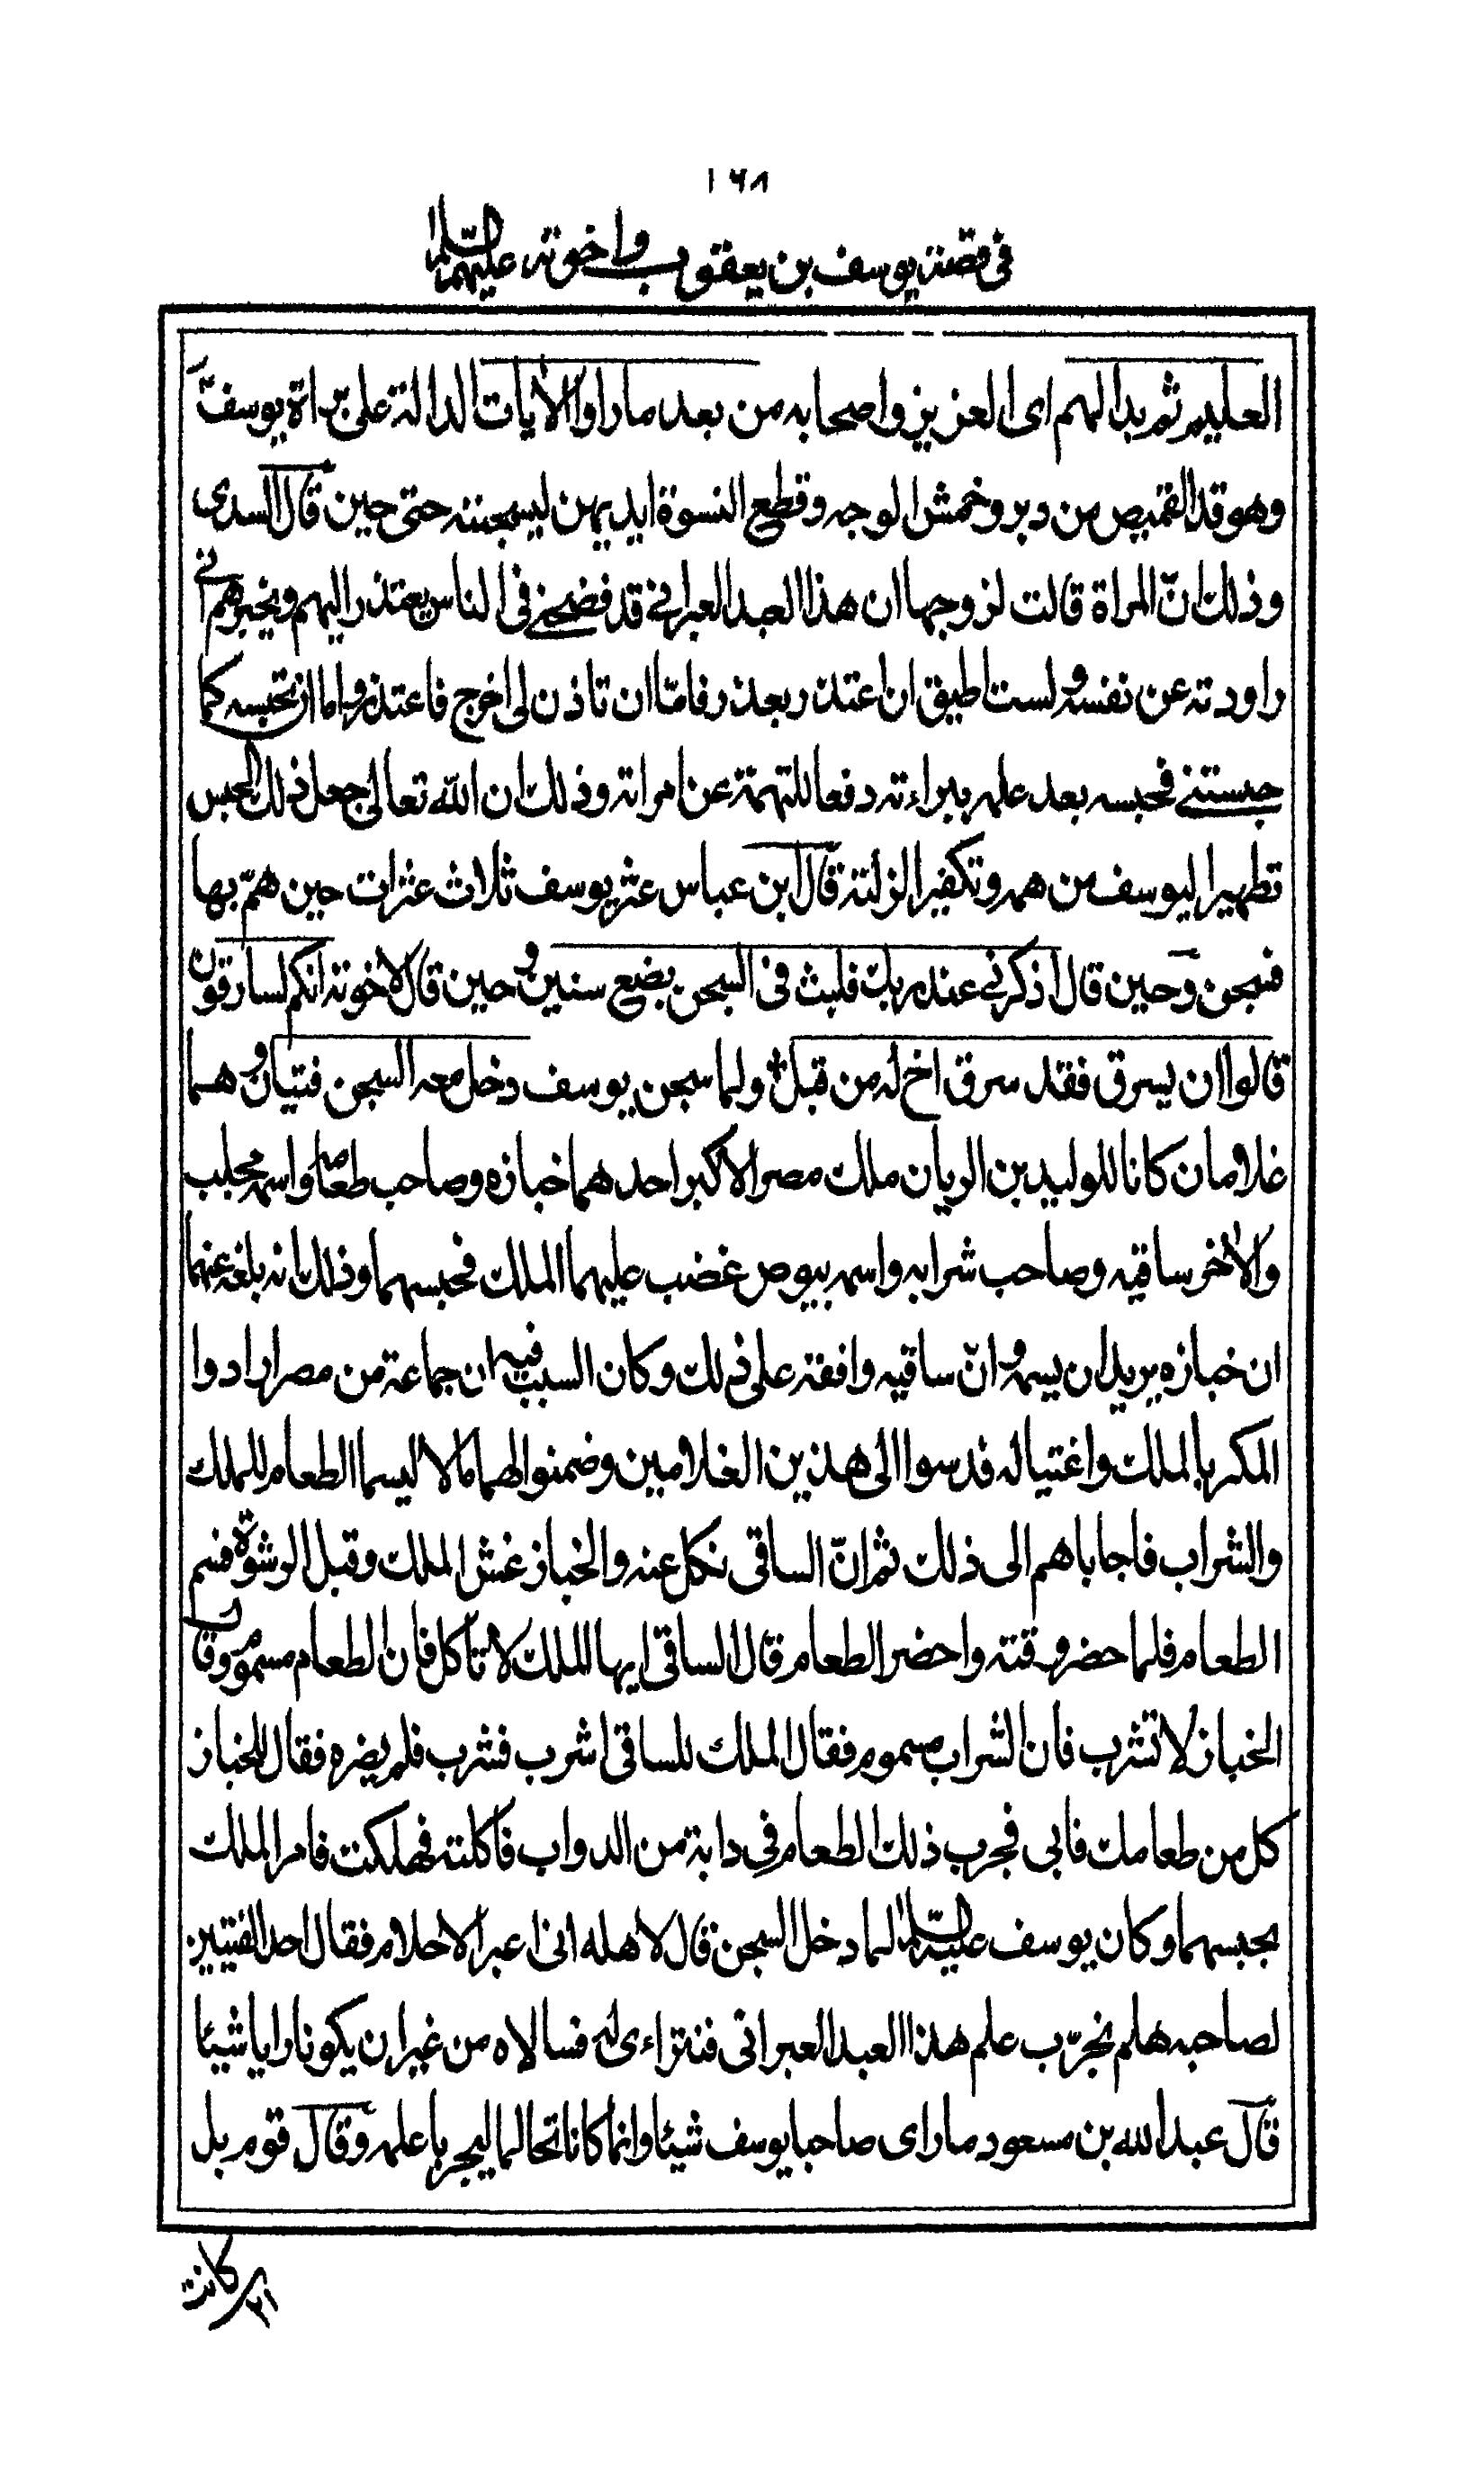 ١٦٨
في قصة يوسف بن يعقوب واخوته عليهم السلام
العليم ثم بدا لهم اى العزيز واصحابه من بعد ما راوا الايات الدالة على براة يوسف
وهو قد القميص من دبر وخمش الوجه وقطع النسوة ايديهن ليسجننه حتى حين قال السدى
وذلك انّ المراة قالت لزوجها ان هذا العبد العبرانى قد فضحنى فى الناس يعتذر اليهم ويخبرهم انى
راودته عن نفسه ولست اطيق ان اعتذر بعذر فامّا ان تاذن لى اخرج فاعتذر واما ان تحبسه كما
حبستنى فحبسه بعد علمه ببراءته دفعا للتهمة عن امراته وذلك ان الله تعالى جعل ذلك الحبس
تطهيرا ليوسف من همه وتكفيرا لزلته قال ابن عباس عثر يوسف ثلاث عثرات حين همّ بها
فسجن وحين قال اذكرنى عند ربك فلبث فى السجن بضع سنين وحين قال لاخوته انكم لسارقون
قالوا ان يسرق فقد سرق اخ له من قبل ولما سجن يوسف دخل معه السجن فتيان وهما
غلامان كانا للوليد بن الريان ملك مصر الاكبر احدهما خبازه وصاحب طعامه واسمه مجلب
والاخر ساقيه وصاحب شرابه واسمه بيوص غضب عليهما الملك فحبسهما وذلك انه بلغه عنهما
ان خبازه يريد ان يسمه وانّ ساقيه وافقه على ذلك وكان السبب فيه ان جماعة من مصر ارادوا
المكر بالملك واغتياله فدسوا الى هذين الغلامين وضمنوا لهما مالا ليسما الطعام للملك
والشراب فاجاباهم الى ذلك ثم انّ الساقى نكل عنه والخباز غش الملك وقبل الرشوة فسم
الطعام فلما حضر وقته واحضر الطعام قال الساقى ايها الملك لا تاكل فان الطعام مسموم وقال
الخباز لا تشرب فان الشراب مسموم فقال الملك للساقى اشرب فشرب فلم يضره فقال للخباز
كل من طعامك فابى فجرب ذلك الطعام في دابة من الدواب فاكلته فهلكت فامر الملك
بحبسهما وكان يوسف عليه السلام لما دخل السجن قال لاهله انى اعبر الاحلام فقال احد الفتيين
لصاحبه هلم نجرّب علم هذا العبد العبرانى فنتراءى له فسالاه من غير ان يكونا رايا شيئا
قال عبد الله بن مسعود ما راى صاحبا يوسف شيئا وانما كانا تحالما ليجربا علمه وقال قوم بل
كانت